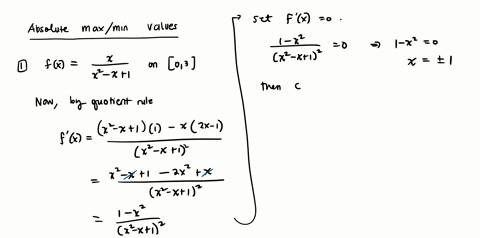 Absolute max/min values
① f(x) = x / (x² - x + 1) on [0,3]
Now, by quotient rule
f'(x) = ((x² - x + 1)(1) - x(2x - 1)) / (x² - x + 1)²
= (x² - x + 1 - 2x² + x) / (x² - x + 1)²
= (1 - x²) / (x² - x + 1)²
set f'(x) = 0.
(1 - x²) / (x² - x + 1)² = 0 ⇒ 1 - x² = 0
x = ± 1
then c